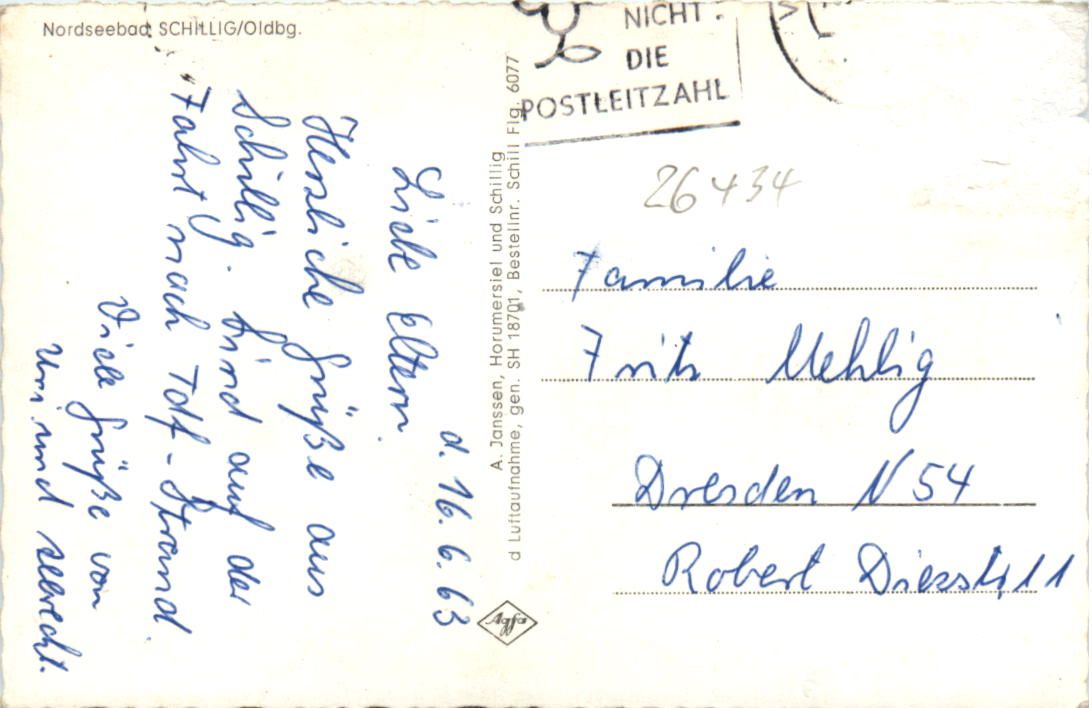 Nordseebad SCHILLIG/Oldbg.
NICHT
DIE
POSTLEITZAHL
d. 16. 6. 63
Liebe Eltern.
Herzliche Grüße aus
Schillig. Sind auf der
Fahrt nach Tdf-Strand.
Viele Grüße von
und
A. Janssen, Horumersiel und Schillig
d Luftaufnahme, gen. SH 18701, Bestellnr. Schill Flg. 6077
Agfa
26434
Familie
Fritz Mehlig
Dresden N 54
Robert